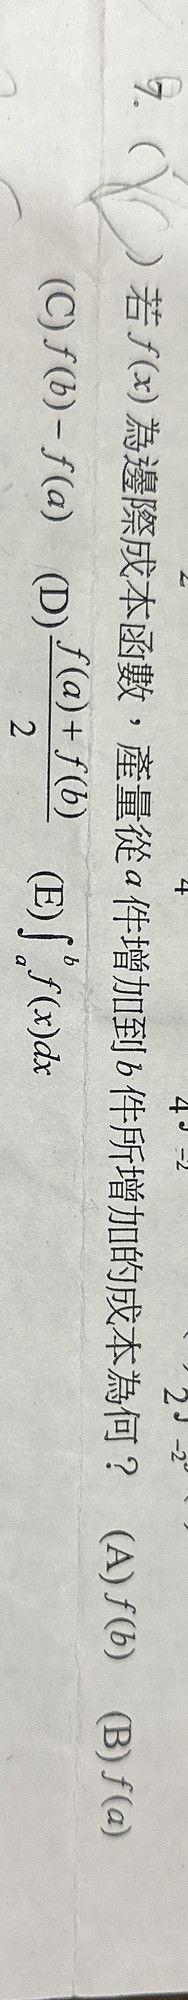 9. ( ) 若 f(x) 為邊際成本函數，產量從 a 件增加到 b 件所增加的成本為何？ (A) f(b) (B) f(a)
(C) f(b) − f(a) (D) \frac{f(a)+f(b)}{2} (E) \int_a^b f(x)dx